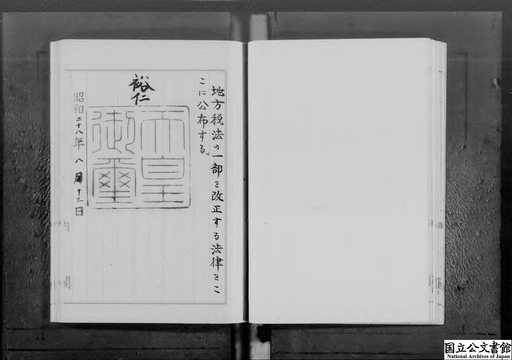 地方税法の一部を改正する法律をこ
こに公布する。
裕仁
天皇
御璽
昭和二十八年八月十三日
国立公文書館
National Archives of Japan